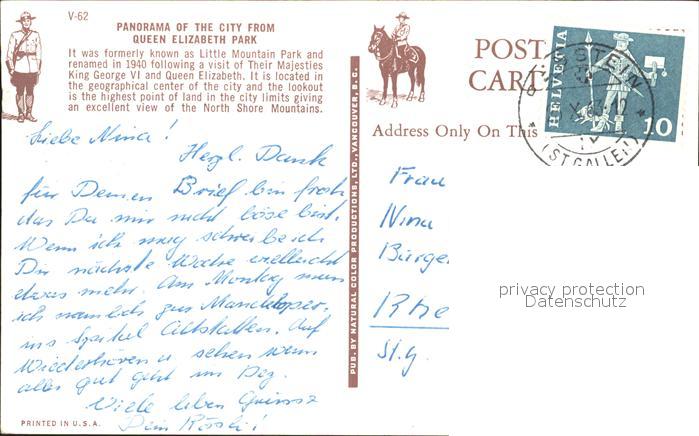 V-62
PANORAMA OF THE CITY FROM
QUEEN ELIZABETH PARK
It was formerly known as Little Mountain Park and
renamed in 1940 following a visit of Their Majesties
King George VI and Queen Elizabeth. It is located in
the geographical center of the city and the lookout
is the highest point of land in the city limits giving
an excellent view of the North Shore Mountains.
Liebe Nina!
Herzl. Dank
für Deinen Brief bin froh
das Du mir nicht böse bist.
Wenn ich mag schreibe ich
Dir nächste Woche vielleicht
etwas mehr. Am Montag muss
ich nämlich zur Mandeloper.
ins Spital Altstätten. Auf
Wiederhören u sehen wenn
alles gut geht im Dez.
Viele liebe Grüsse
Dein Rösli!
PRINTED IN U.S.A.
PUB. BY NATURAL COLOR PRODUCTIONS, LTD., VANCOUVER, B.C.
POST
CARD
Address Only On This
HELVETIA
10
(ST GALLEN)
Frau
Nina
Bürge
Rhe
St. G.
privacy protection
Datenschutz